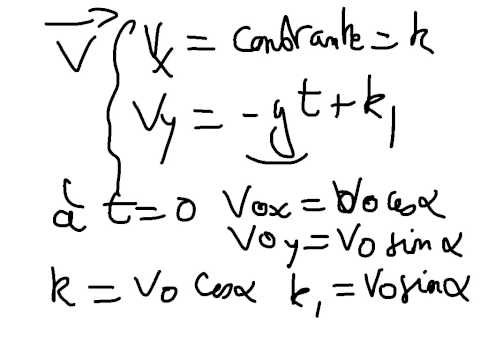 V⃗ { Vx = constante = k
Vy = -gt + k₁
à t = 0 V0x = V0 cosα
V0y = V0 sin α
k = V0 cosα k₁ = V0 sinα